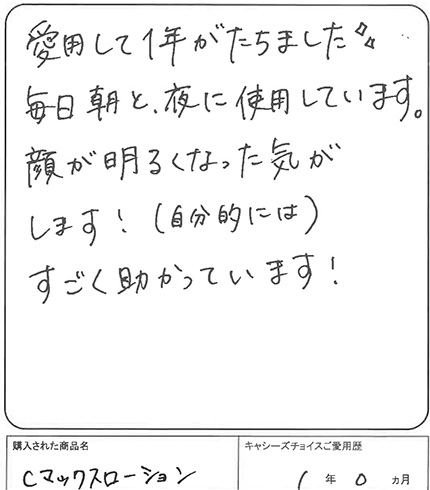 愛用して1年がたちました
毎日朝と、夜に使用しています。
顔が明るくなった気が
します!(自分的には)
すごく助かっています!
購入された商品名
Cマックスローション
キャシーズチョイスご愛用歴
1年0ヵ月